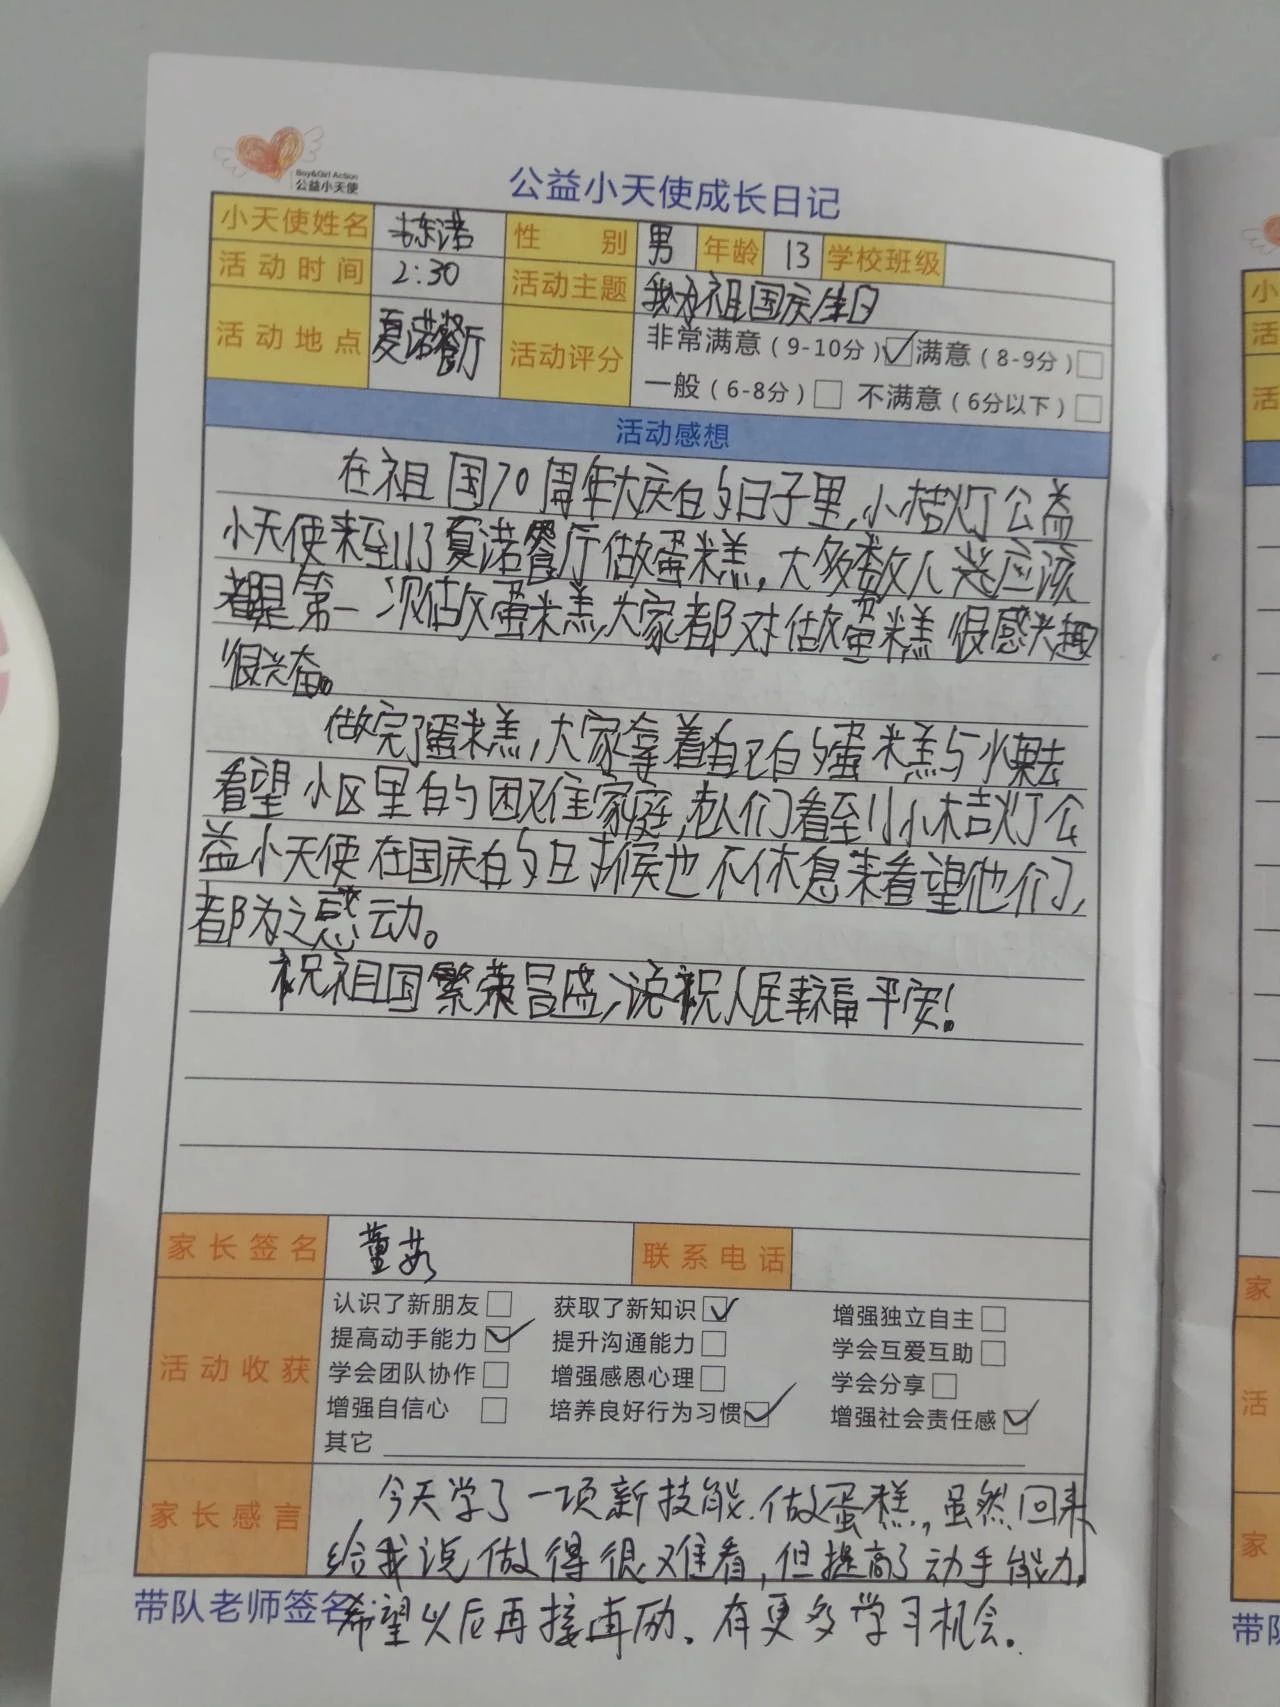 Boy&Girl Action
公益小天使
公益小天使成长日记
小天使姓名 栋诺 性别 男 年龄 13 学校班级
活动时间 2:30 活动主题 我为祖国庆生日
活动地点 夏诺餐厅 活动评分 非常满意（9-10分）☑ 满意（8-9分）□
一般（6-8分）□ 不满意（6分以下）□
活动感想
在祖国70周年大庆的日子里,小桔灯公益
小天使来到了夏诺餐厅做蛋糕,大多数人应该
都是第一次做蛋糕,大家都对做蛋糕很感兴趣
很兴奋。
做完了蛋糕,大家拿着自己的蛋糕与水果去
看望小区里的困难家庭,老人们看到小桔灯公
益小天使在国庆的日时候也不休息来看望他们,
都为之感动。
祝祖国繁荣昌盛,祝人民幸福平安!
家长签名 董 联系电话
活动收获
认识了新朋友□ 获取了新知识☑ 增强独立自主□
提高动手能力☑ 提升沟通能力□ 学会互爱互助□
学会团队协作□ 增强感恩心理□ 学会分享□
增强自信心□ 培养良好行为习惯☑ 增强社会责任感☑
其它
家长感言
今天学了一项新技能.做蛋糕,虽然回来
给我说做得很难看,但提高了动手能力.
带队老师签名:
希望以后再接再励.有更多学习机会.
小
活
活
家
活
家
带队